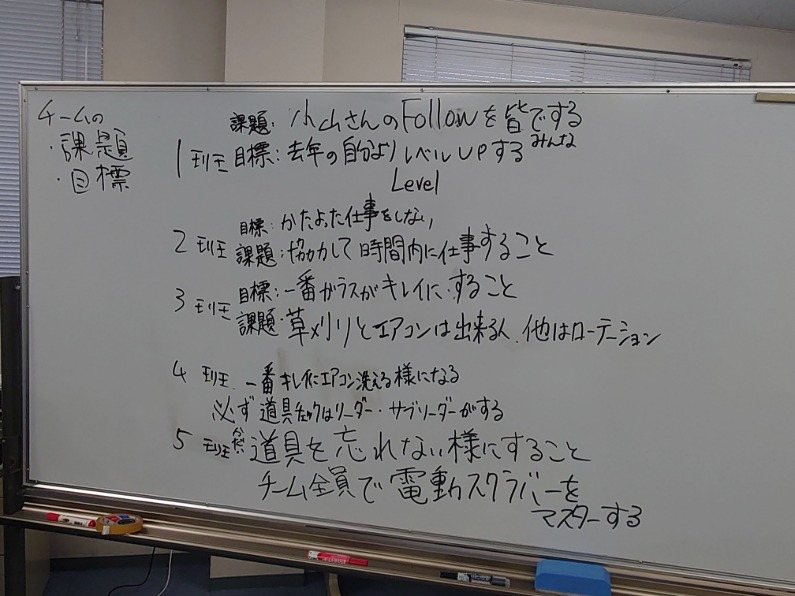 チームの
・課題
・目標
課題:小山さんのFollowを皆でする
みんな
1班 目標:去年の自分よりレベルUPする
Level
目標:かたよった仕事をしない
2班 課題:協力して時間内に仕事すること
3班 目標:一番ガラスがキレイにすること
課題:草刈りとエアコンは出来る人.他はローテーション
4班.一番キレイにエアコン洗える様になる
必ず道具チェックはリーダー・サブリーダーがする
5班 道具を忘れない様にすること
チーム全員で電動スクラバーを
マスターする